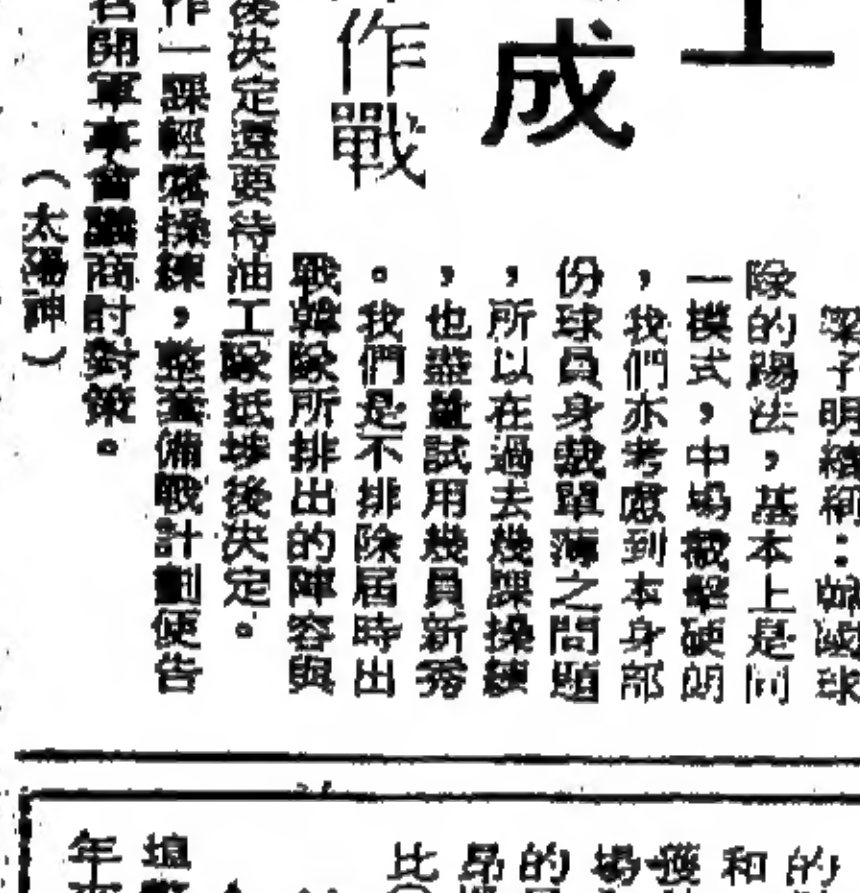 工
成
作戰
梁子明續稱：　球
隊的踢法，基本上是同
一模式，中場截擊硬朗
，我們亦考慮到本身部
份球員身裁單薄之問題
，所以在過去幾課操練
，也盡量試用幾員新秀
。我們是不排除屆時出
戰韓隊所排出的陣容與
後決定還要待油工隊抵埗後決定。
作一課輕鬆操練，整套備戰計劃便告
召開軍事會議商討對策。
（太陽神）
的
和
獲
場
的
昂
比
埴
年